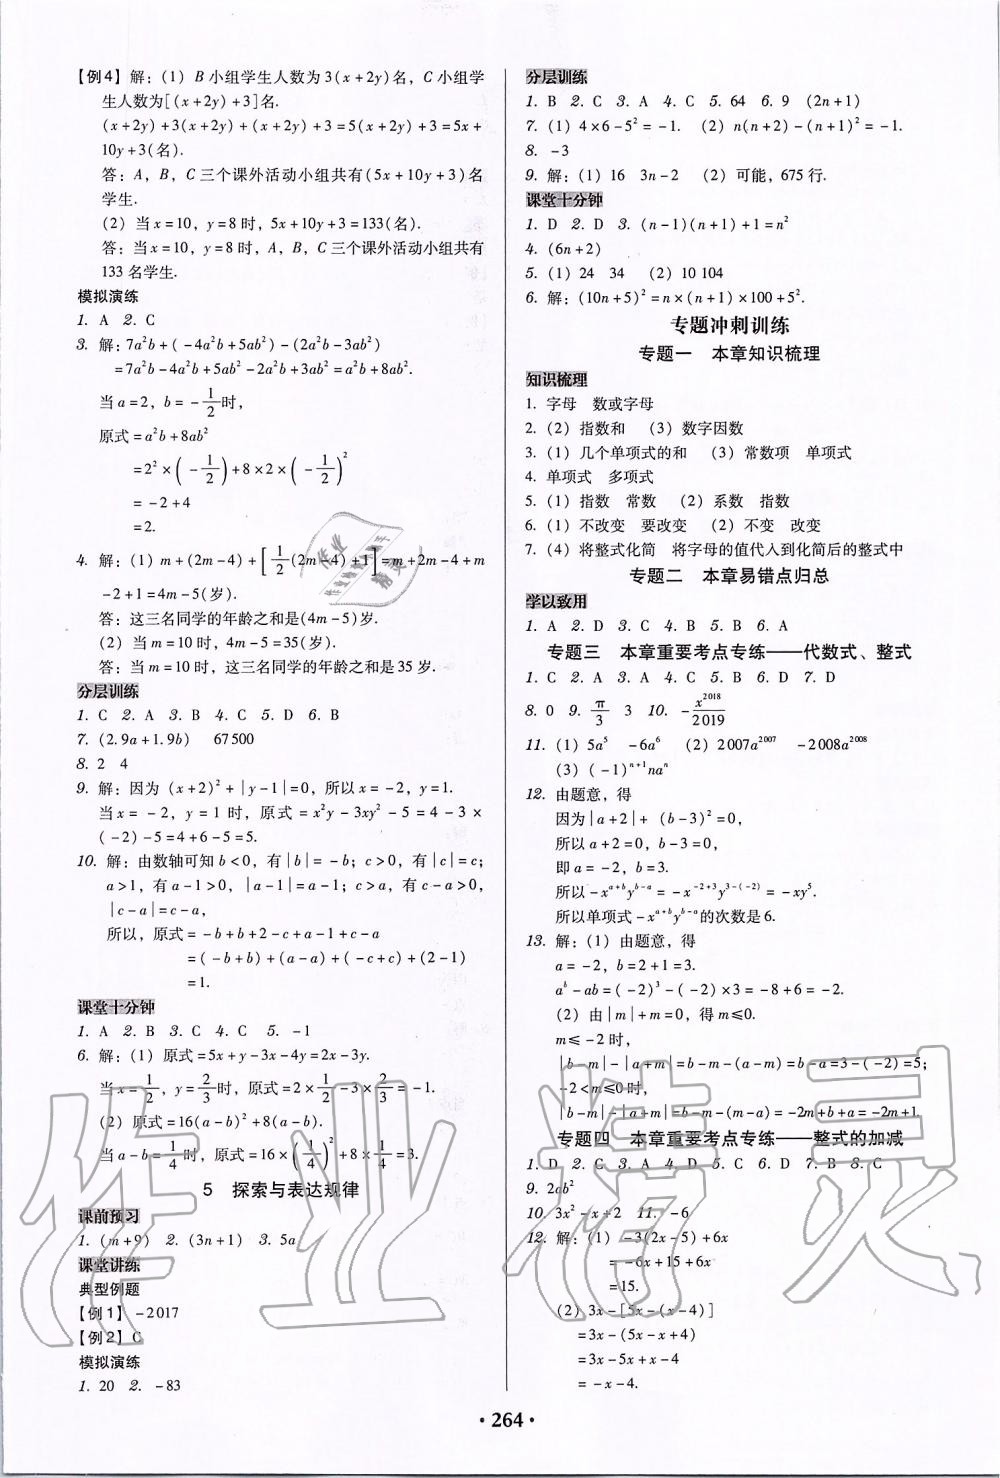 【例4】解:(1) B小组学生人数为3(x+2y)名,C小组学
生人数为[(x+2y)+3]名.
(x+2y)+3(x+2y)+(x+2y)+3=5(x+2y)+3=5x+
10y+3(名).
答:A,B,C三个课外活动小组共有(5x+10y+3)名
学生.
(2)当x=10,y=8时,5x+10y+3=133(名).
答:当x=10,y=8时,A,B,C三个课外活动小组共有
133名学生.
模拟演练
1. A 2. C
3. 解:7a²b+(-4a²b+5ab²)-(2a²b-3ab²)
=7a²b-4a²b+5ab²-2a²b+3ab²=a²b+8ab².
当a=2,b=-1/2时,
原式=a²b+8ab²
=2²×(-1/2)+8×2×(-1/2)²
=-2+4
=2.
4. 解:(1)m+(2m-4)+[1/2(2m-4)+1]=m+2m-4+m
-2+1=4m-5(岁).
答:这三名同学的年龄之和是(4m-5)岁.
(2)当m=10时,4m-5=35(岁).
答:当m=10时,这三名同学的年龄之和是35岁.
分层训练
1. C 2. A 3. B 4. C 5. D 6. B
7. (2.9a+1.9b) 67500
8. 2 4
9. 解:因为(x+2)²+|y-1|=0,所以x=-2,y=1.
当x=-2,y=1时,原式=x²y-3xy²-5=4-3×
(-2)-5=4+6-5=5.
10. 解:由数轴可知b<0,有|b|=-b;c>0,有|c|=c;
a>1,有a-1>0,|a-1|=a-1;c>a,有c-a>0,
|c-a|=c-a,
所以,原式=-b+b+2-c+a-1+c-a
=(-b+b)+(a-a)+(-c+c)+(2-1)
=1.
课堂十分钟
1. A 2. B 3. C 4. C 5. -1
6. 解:(1)原式=5x+y-3x-4y=2x-3y.
当x=1/2,y=2/3时,原式=2×1/2-3×2/3=-1.
(2)原式=16(a-b)²+8(a-b).
当a-b=1/4时,原式=16×(1/4)²+8×1/4=3.
5 探索与表达规律
课前预习
1. (m+9) 2. (3n+1) 3. 5a
课堂讲练
典型例题
【例1】-2017
【例2】C
模拟演练
1. 20 2. -83
分层训练
1. B 2. C 3. A 4. C 5. 64 6. 9 (2n+1)
7. (1)4×6-5²=-1. (2)n(n+2)-(n+1)²=-1.
8. -3
9. 解:(1)16 3n-2 (2)可能,675行.
课堂十分钟
1. D 2. D 3. (n-1)(n+1)+1=n²
4. (6n+2)
5. (1)24 34 (2)10 104
6. 解:(10n+5)²=n×(n+1)×100+5².
专题冲刺训练
专题一 本章知识梳理
知识梳理
1. 字母 数或字母
2. (2)指数和 (3)数字因数
3. (1)几个单项式的和 (3)常数项 单项式
4. 单项式 多项式
5. (1)指数 常数 (2)系数 指数
6. (1)不改变 要改变 (2)不变 改变
7. (4)将整式化简 将字母的值代入到化简后的整式中
专题二 本章易错点归总
学以致用
1. A 2. D 3. C 4. B 5. B 6. A
专题三 本章重要考点专练——代数式、整式
1. C 2. A 3. A 4. C 5. B 6. D 7. D
8. 0 9. π/3 3 10. -x²⁰¹⁸/2019
11. (1)5a⁵ -6a⁶ (2)2007a²⁰⁰⁷ -2008a²⁰⁰⁸
(3)(-1)ⁿ⁺¹naⁿ
12. 由题意,得
因为|a+2|+(b-3)²=0,
所以a+2=0,b-3=0,
即a=-2,b=3.
所以-xᵃ⁺ᵇyᵇ⁻ᵃ=-x⁻²⁺³y³⁻⁽⁻²⁾=-xy⁵.
所以单项式-xᵃ⁺ᵇyᵇ⁻ᵃ的次数是6.
13. 解:(1)由题意,得
a=-2,b=2+1=3.
aᵇ-ab=(-2)³-(-2)×3=-8+6=-2.
(2)由|m|+m=0,得m≤0.
m≤-2时,
|b-m|-|a+m|=b-m-(a-m)=b-a=3-(-2)=5;
-2<m≤0时,
|b-m|-|a+m|=b-m-(m-a)=-2m+b+a=-2m+1.
专题四 本章重要考点专练——整式的加减
1. D 2. C 3. A 4. D 5. C 6. D 7. B 8. C
9. 2ab²
10. 3x²-x+2 11. -6
12. 解:(1)-3(2x-5)+6x
=-6x+15+6x
=15.
(2)3x-[5x-(x-4)]
=3x-(5x-x+4)
=3x-5x+x-4
=-x-4.
·264·
作业精灵